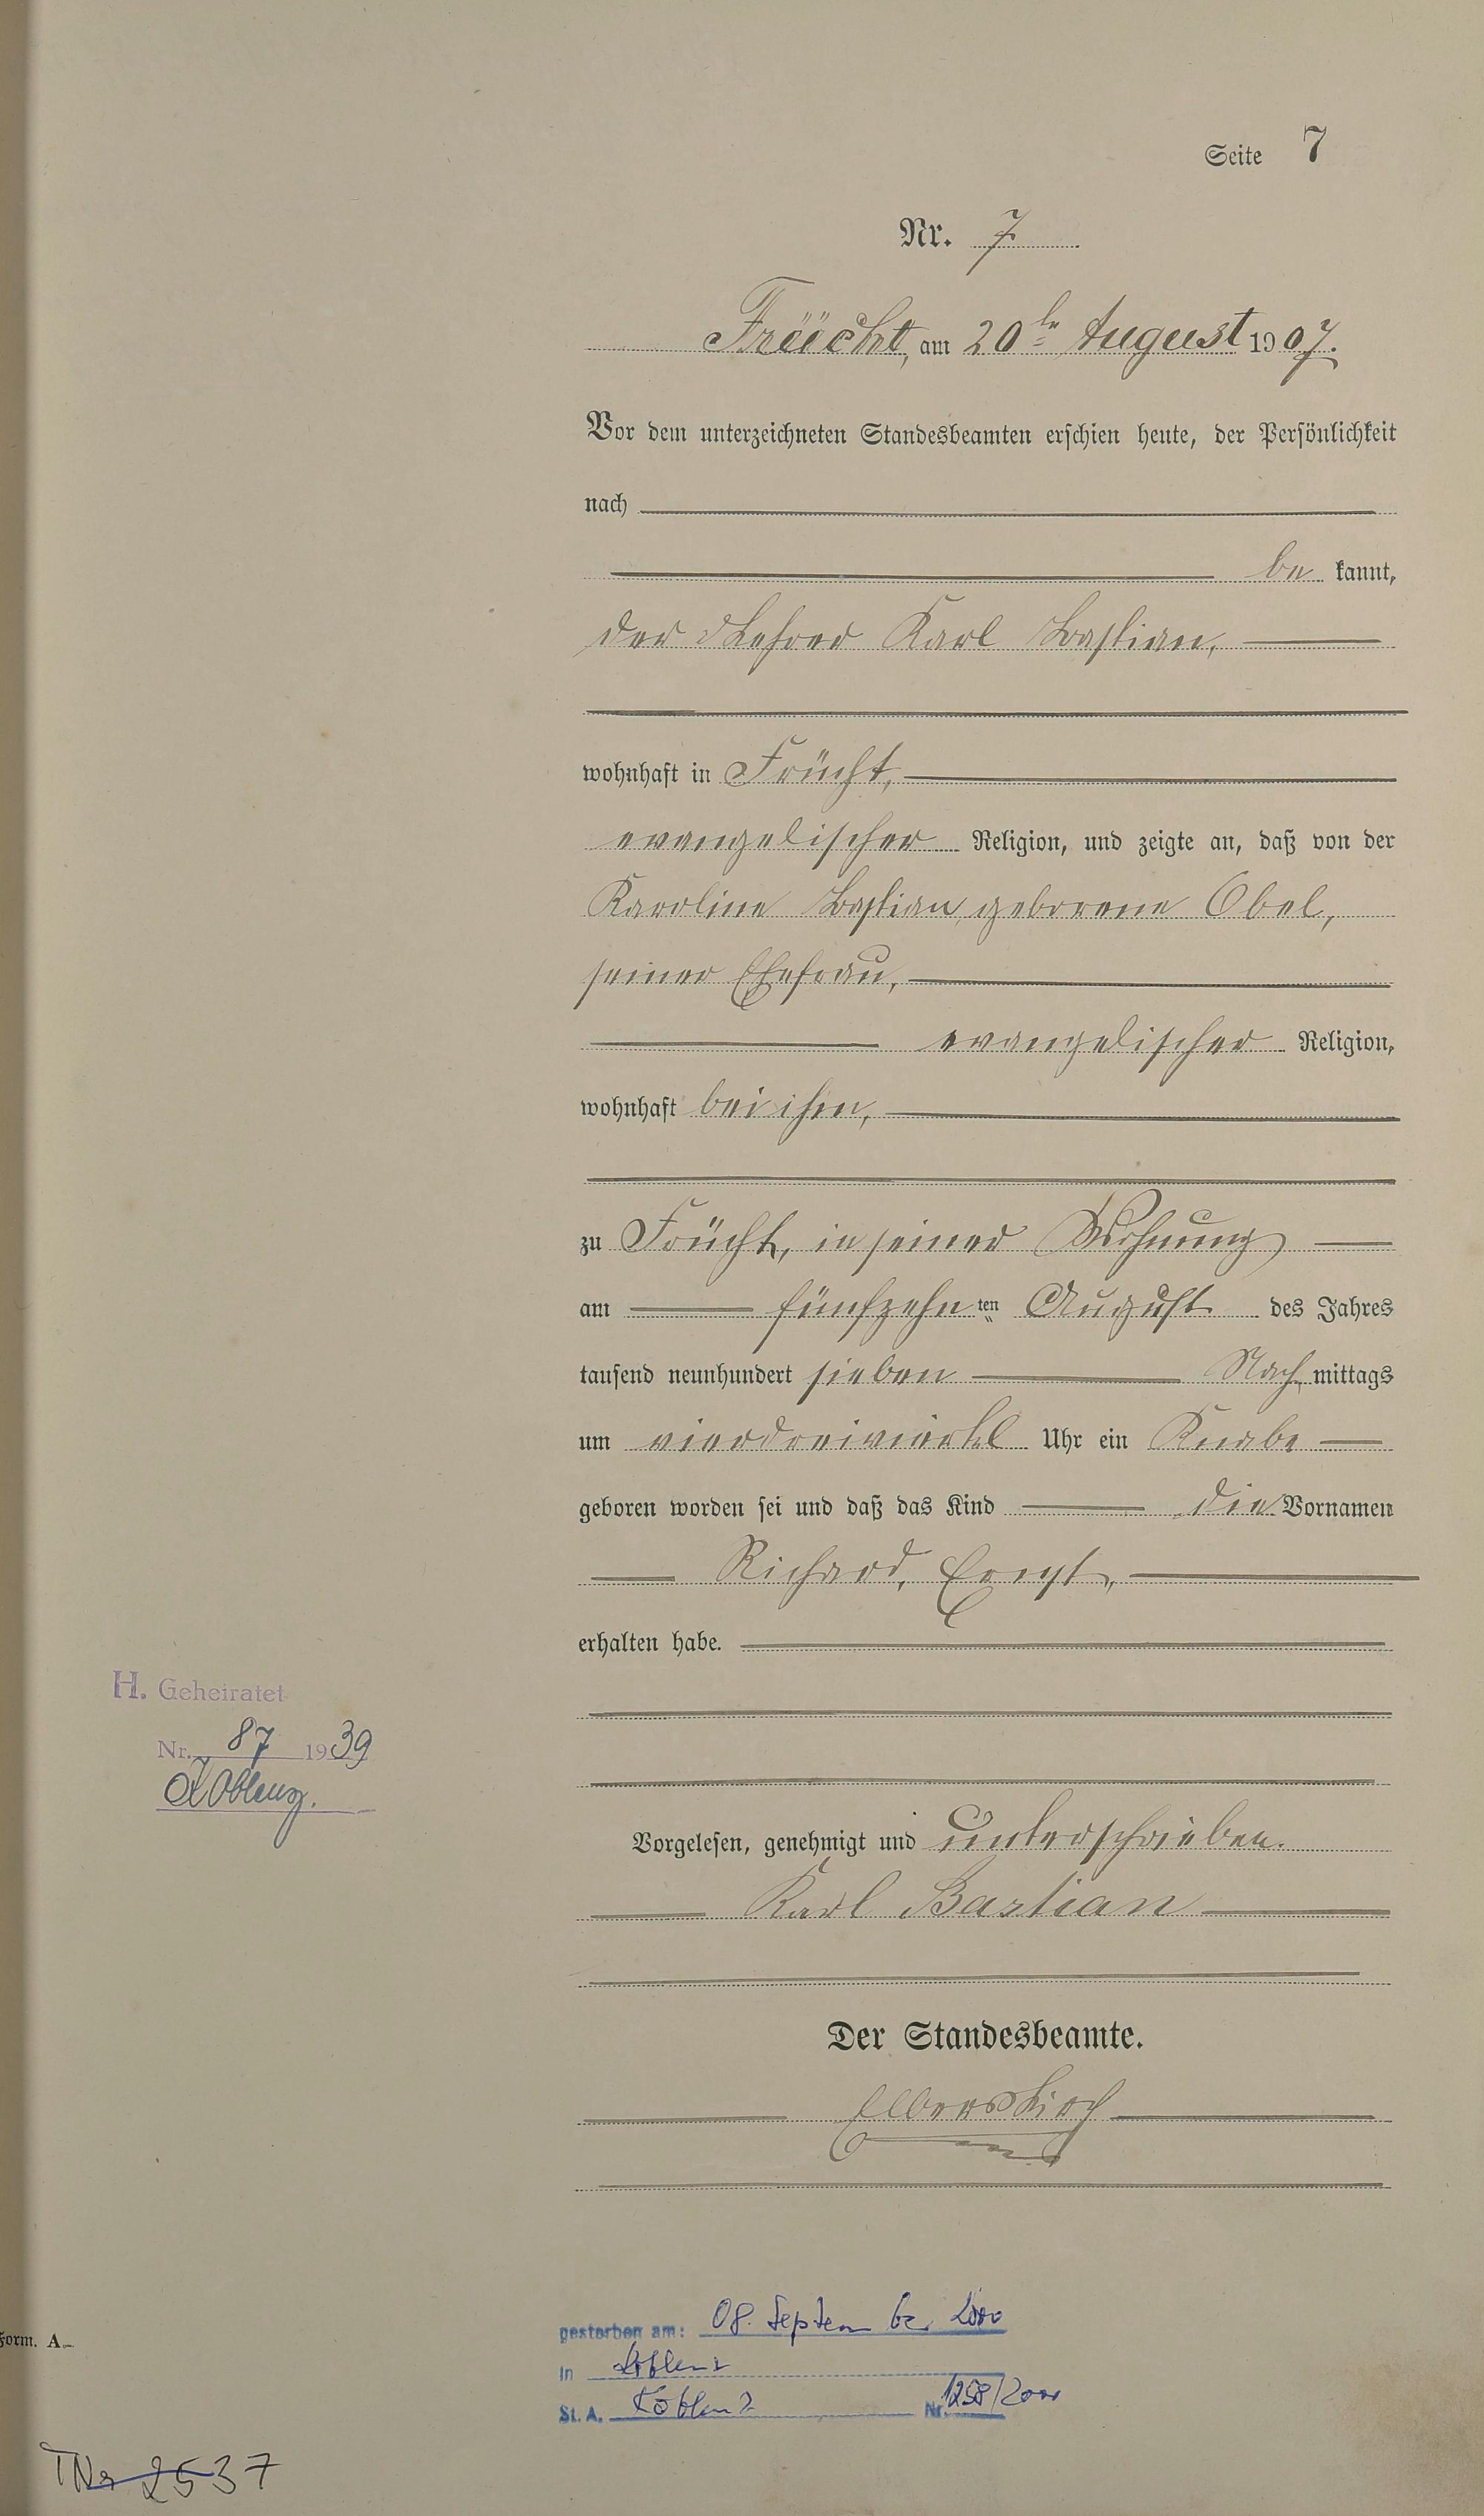 Seite 7
Nr. 7
Frücht, am 20ten August 1907.
Vor dem unterzeichneten Standesbeamten erschien heute, der Persönlichkeit
nach
be kannt,
der Lehrer Karl Bastian,
wohnhaft in Frücht,
evangelischer Religion, und zeigte an, daß von der
Karoline Bastian geborene Obel,
seiner Ehefrau,
evangelischer Religion,
wohnhaft bei ihm,
zu Frücht, in seiner Wohnung
am fünfzehn ten August des Jahres
tausend neunhundert sieben Nach mittags
um vierdreiviertel Uhr ein Knabe
geboren worden sei und daß das Kind die Vornamen
Richard, Ernst,
erhalten habe.
H. Geheiratet
Nr. 87 1939
Koblenz.
Vorgelesen, genehmigt und unterschrieben.
Karl Bastian
Der Standesbeamte.
Elberskirch
gestorben am: 08. September 2000
Form. A.
in Koblenz
St. A. Koblenz Nr. 1258/2000
TNr 2537